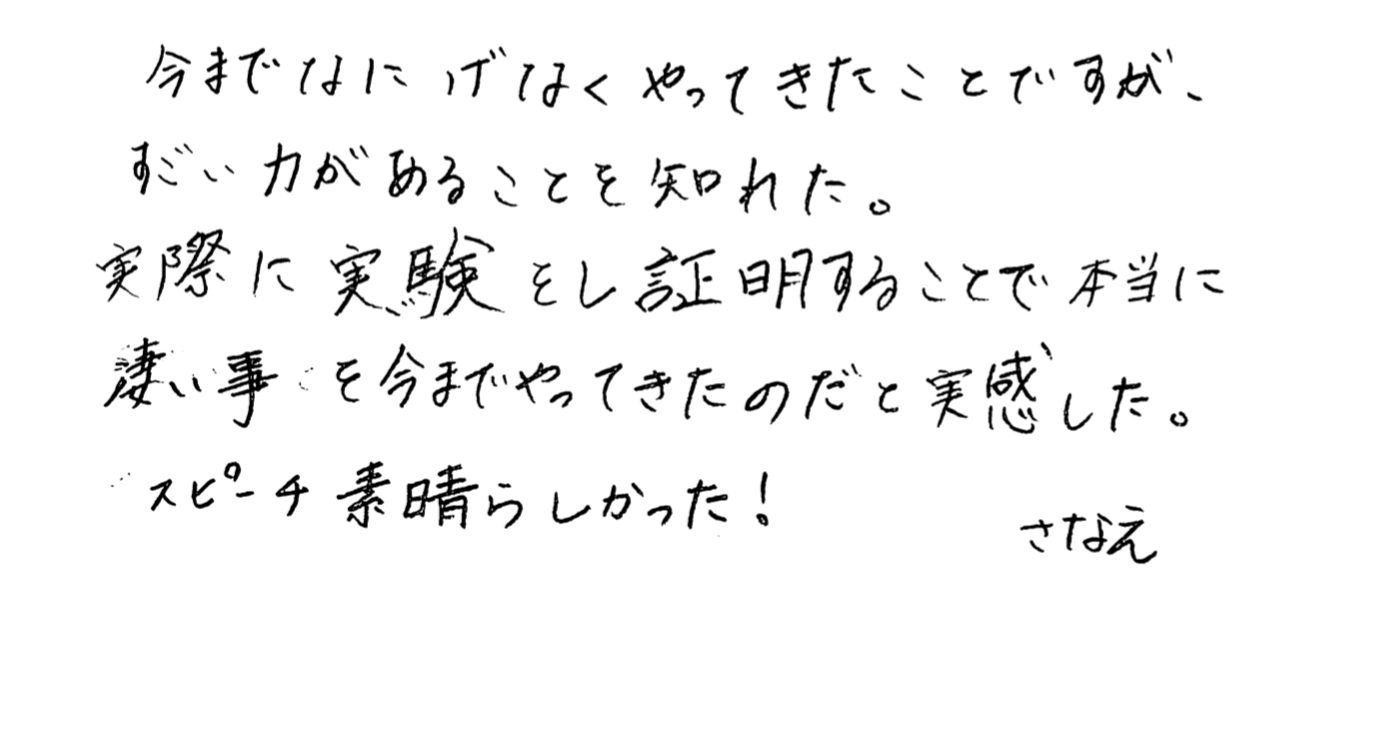 今までなにげなくやってきたことですが、
すごい力があることを知れた。
実際に実験をし証明することで本当に
凄い事を今までやってきたのだと実感した。
スピーチ素晴らしかった!
さなえ